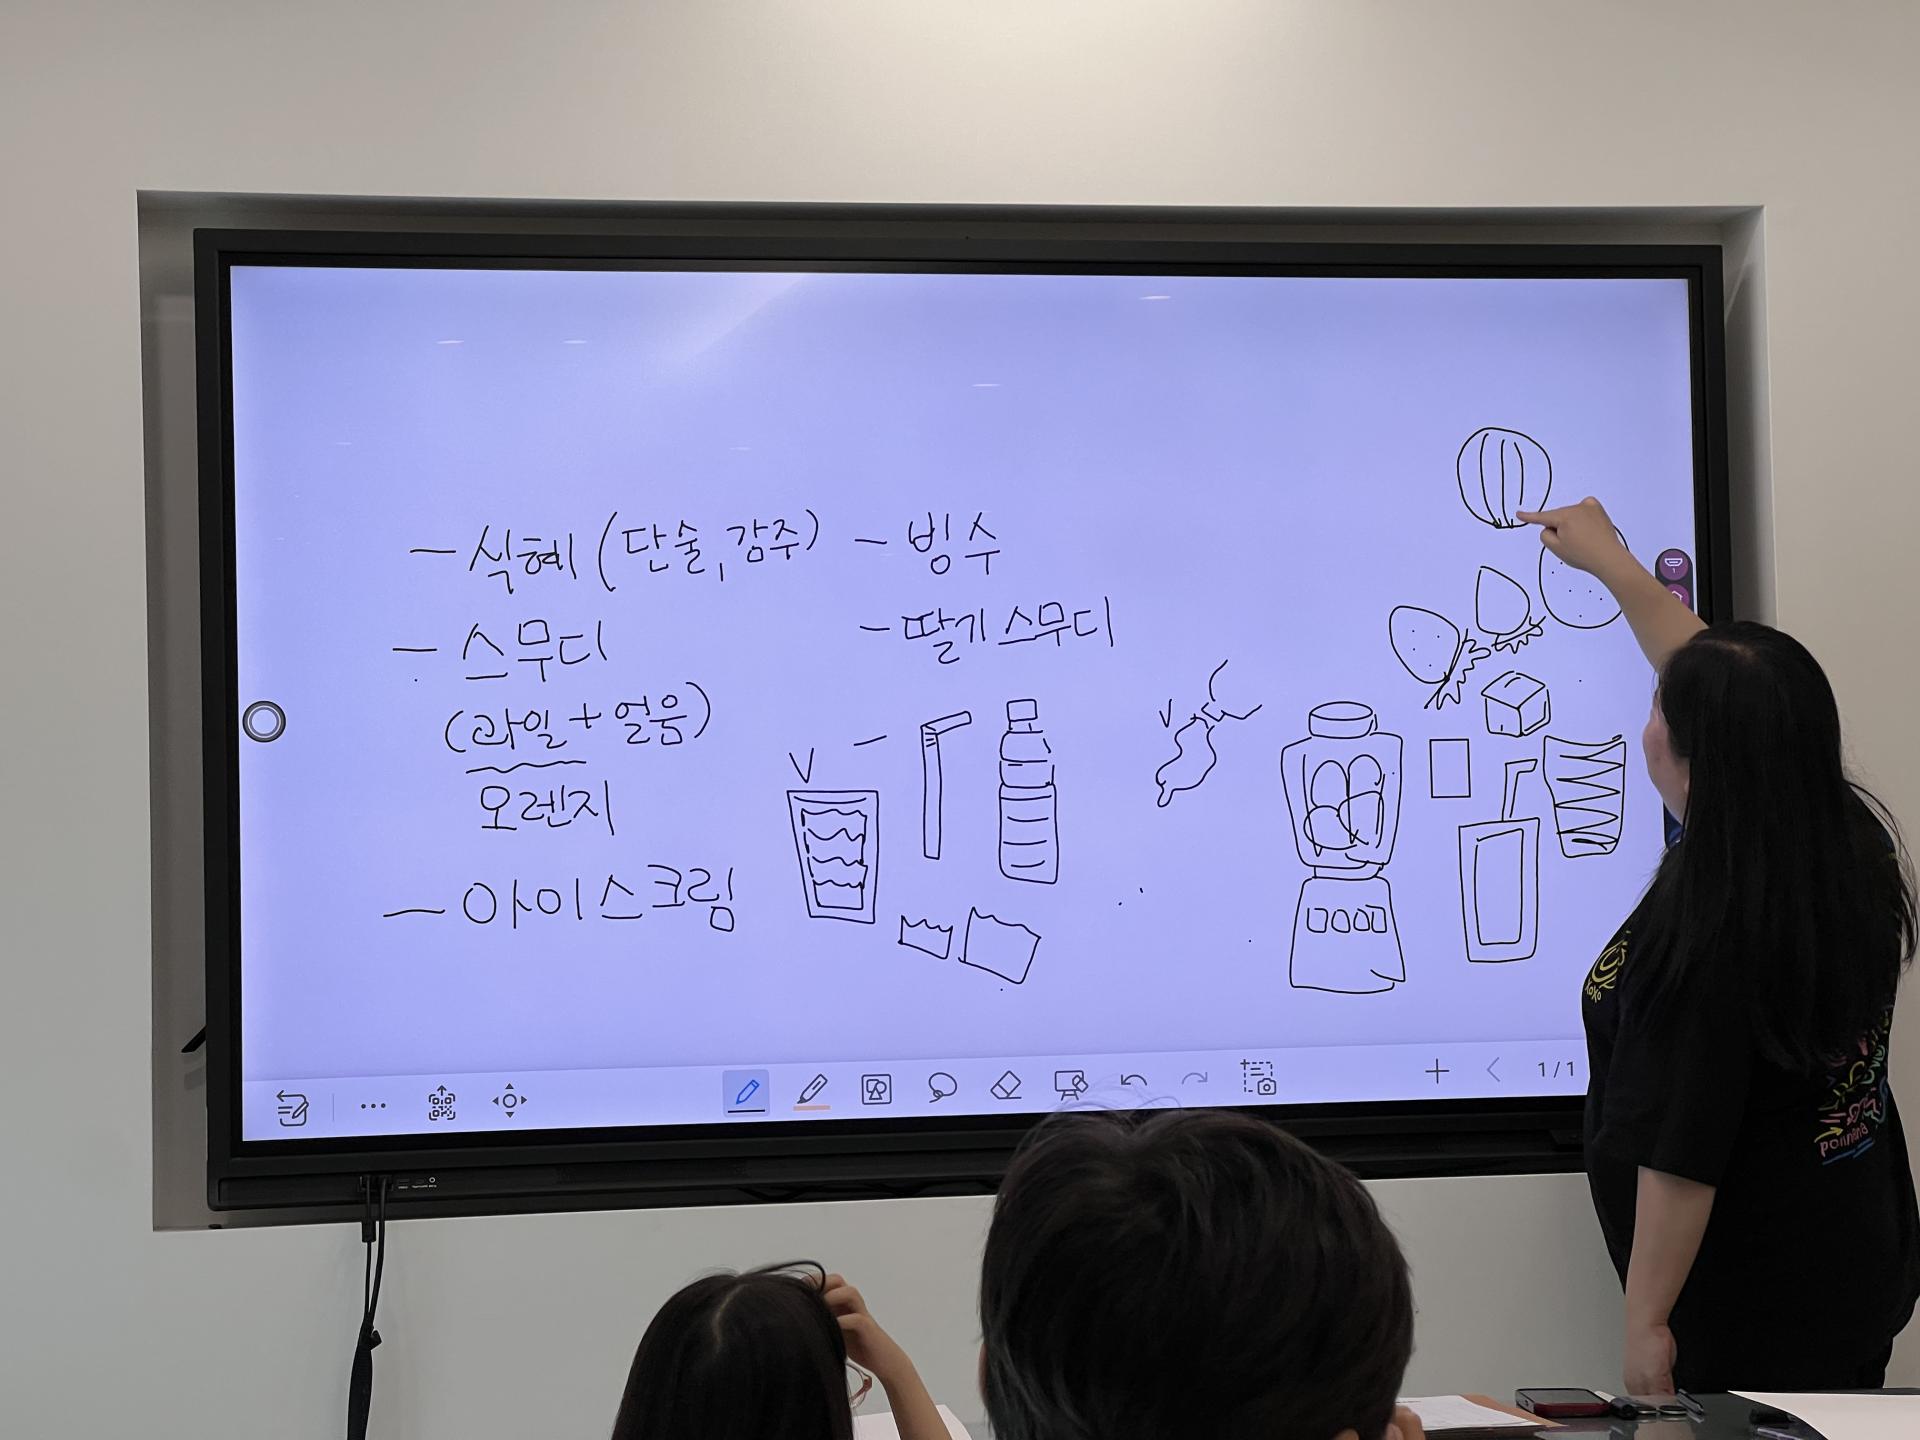 - 식혜 (단술, 감주)
- 스무디
(과일 + 얼음)
오렌지
- 아이스크림
- 빙수
- 딸기 스무디
V
V
1/1